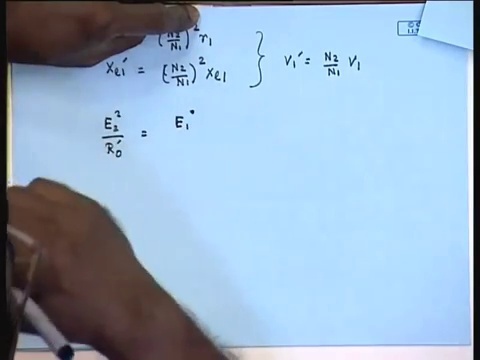 (N₂/N₁)² r₁
xₑ₁′ = (N₂/N₁)² xₑ₁ } V₁′ = N₂/N₁ V₁
E₂²/R₀′ = E₁